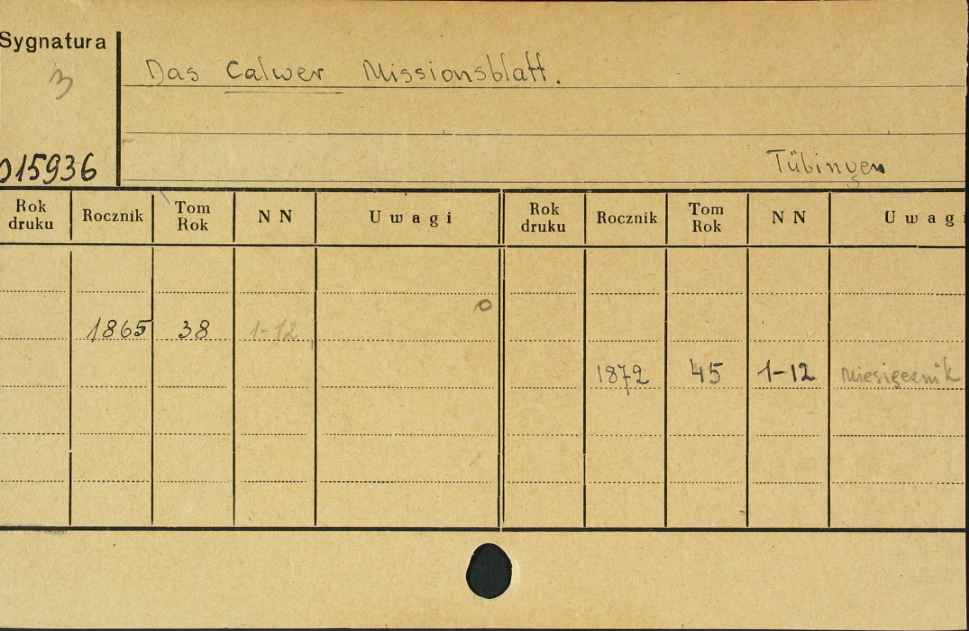 Sygnatura
3
Das Calwer Missionsblatt.
Tübingen
015936
Rok druku Rocznik Tom Rok N N Uwagi Rok druku Rocznik Tom Rok N N Uwagi
1865 38 1-12
1872 45 1-12 miesięcznik